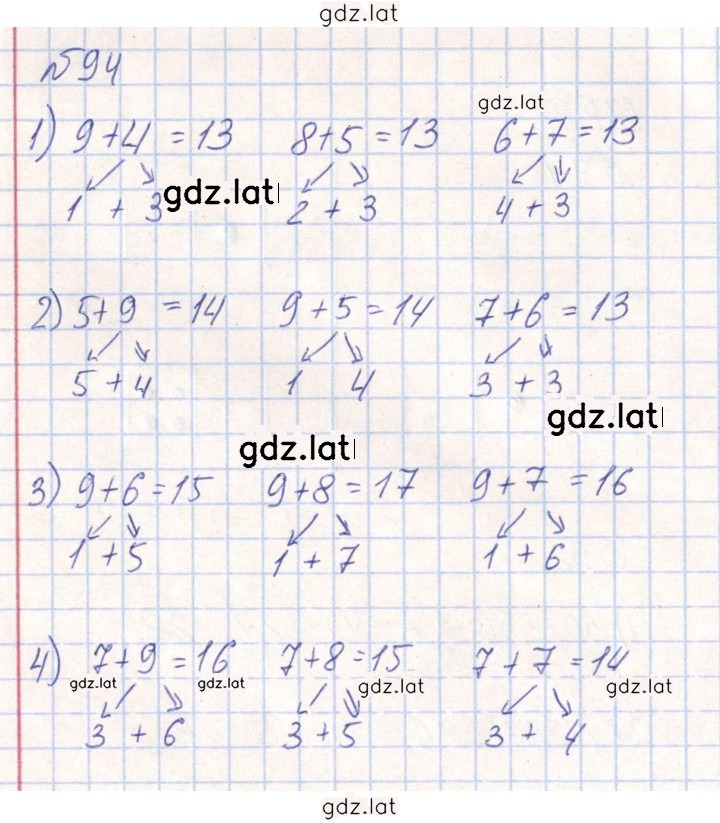 gdz.lat
№94
gdz.lat
1) 9+4=13 8+5=13 6+7=13
1 + 3 gdz.lat 2 + 3 4 + 3
2) 5+9=14 9+5=14 7+6=13
5 + 4 1 4 3 + 3
gdz.lat
gdz.lat
3) 9+6=15 9+8=17 9+7=16
1 + 5 1 + 7 1 + 6
4) 7+9=16 7+8=15 7+7=14
gdz.lat gdz.lat gdz.lat gdz.lat
3 + 6 3 + 5 3 + 4
gdz.lat